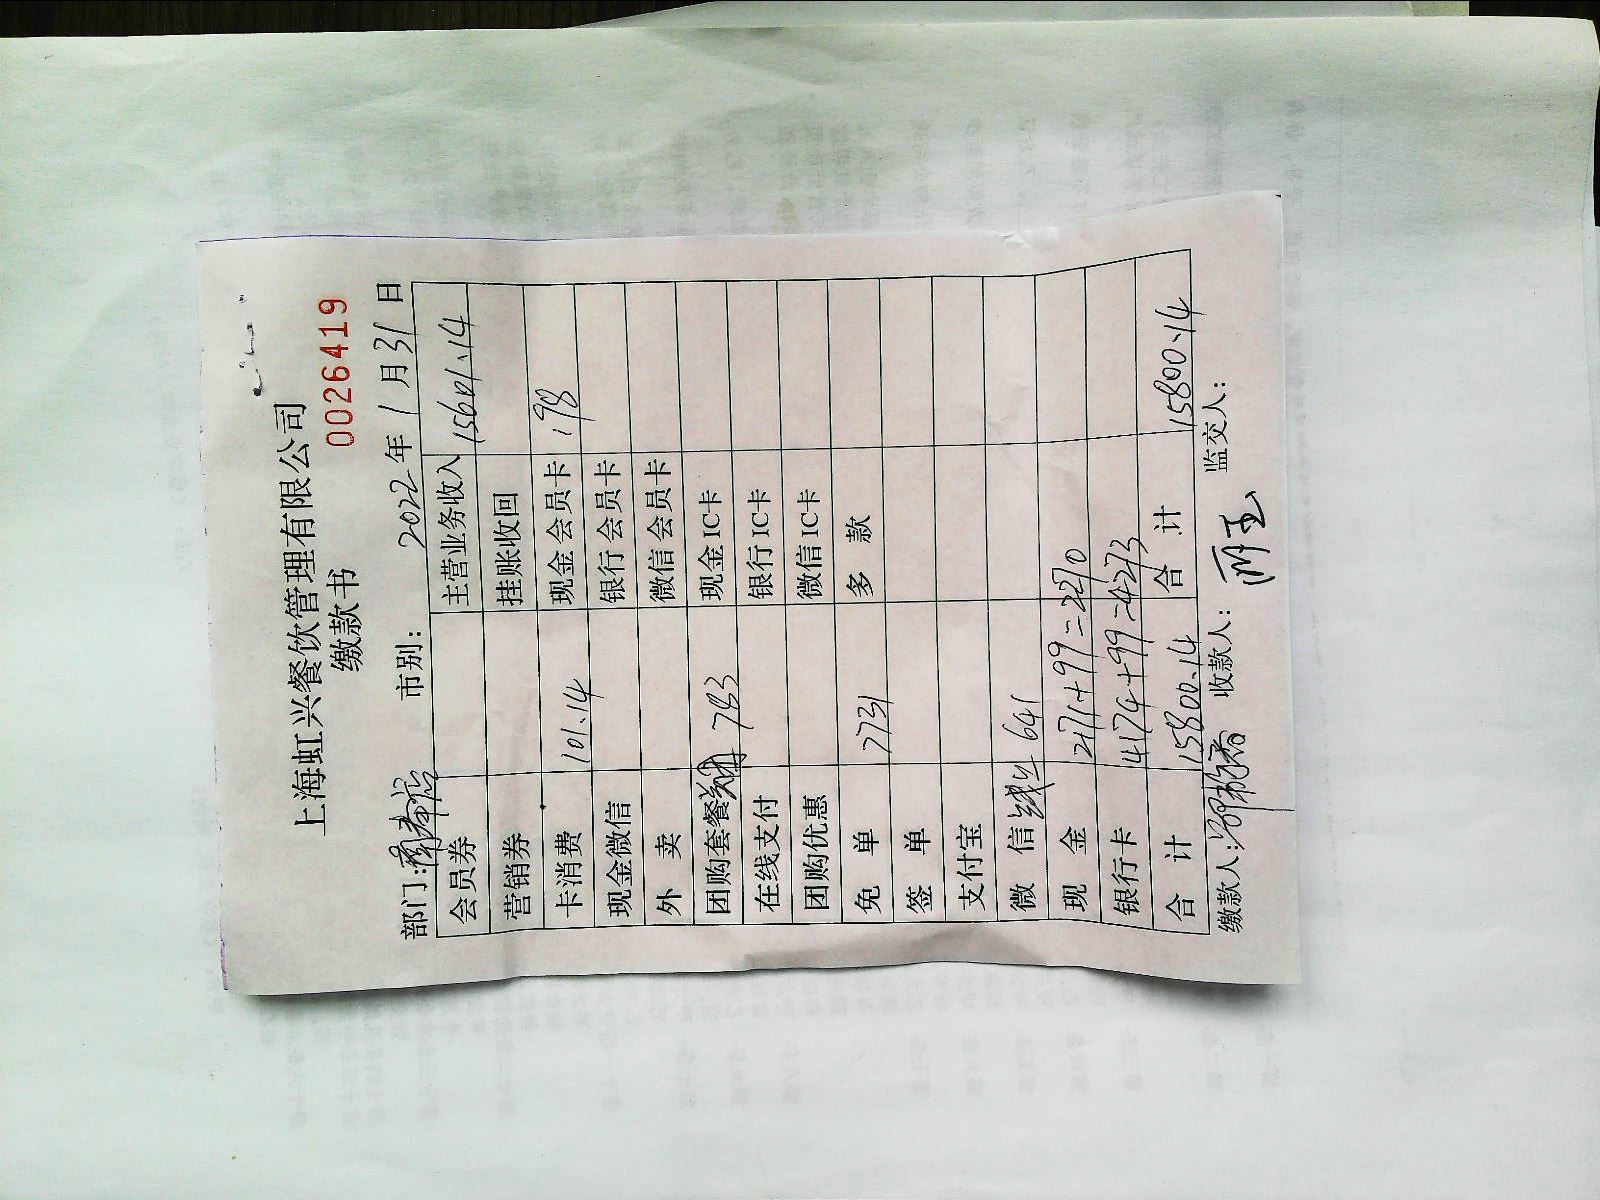 上海虹兴餐饮管理有限公司
缴款书
0026419
部门: 市别: 2022年1月31日
会员券 主营业务收入 15601.14
营销券 挂账收回
卡消费 101.14 现金会员卡 198
现金微信 银行会员卡
外卖 微信会员卡
团购套餐 783 现金IC卡
在线支付 银行IC卡
团购优惠 微信IC卡
免单 7731 多款
签单
支付宝
微信 641
现金 2171+99=2270
银行卡 4174+99=4273
合计 15800.14 合计 15800.14
缴款人: 收款人: 监交人: